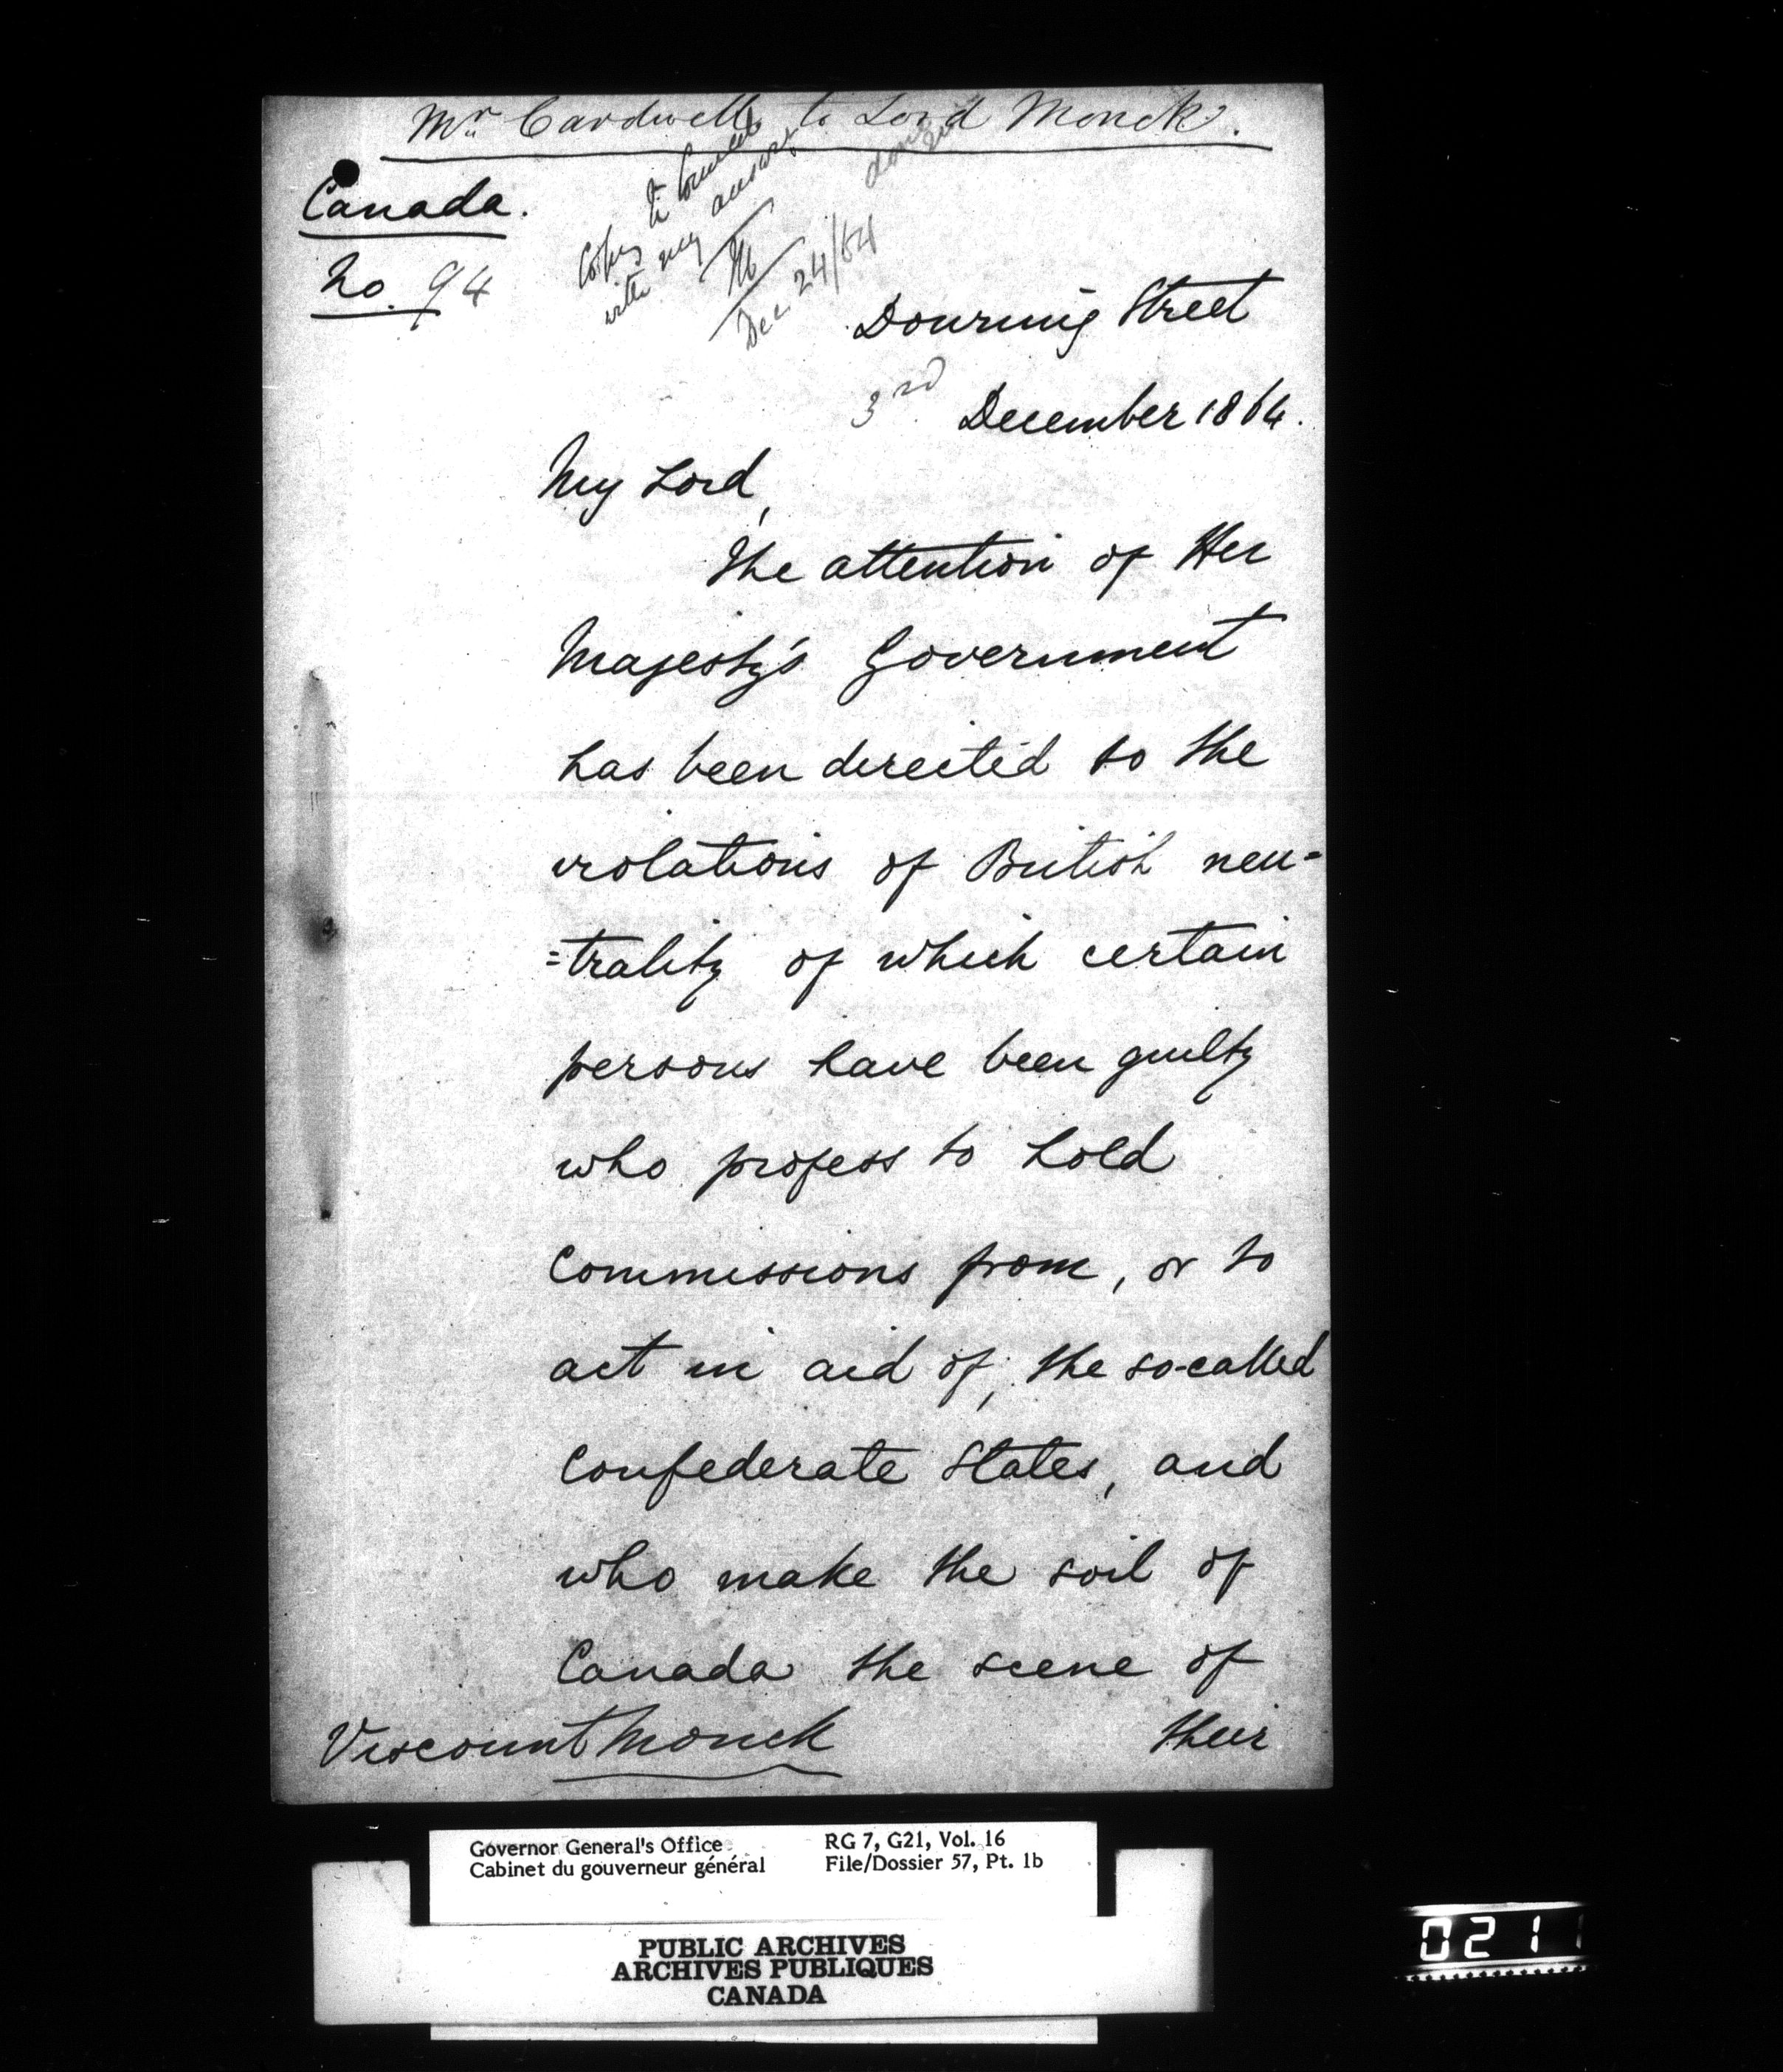 Mr. Cardwell to Lord Monck.
Canada.
No. 94
Copy to Council
with my answer
M
Dec 24/64
done
Downing Street
3rd December 1864.
My Lord,
The attention of Her
Majesty's Government
has been directed to the
violations of British neu=
=trality of which certain
persons have been guilty
who profess to hold
Commissions from, or to
act in aid of, the so-called
Confederate States, and
who make the soil of
Canada the scene of
Viscount Monck
their
Governor General's Office
Cabinet du gouverneur général
RG 7, G21, Vol. 16
File/Dossier 57, Pt. 1b
PUBLIC ARCHIVES
ARCHIVES PUBLIQUES
CANADA
0211